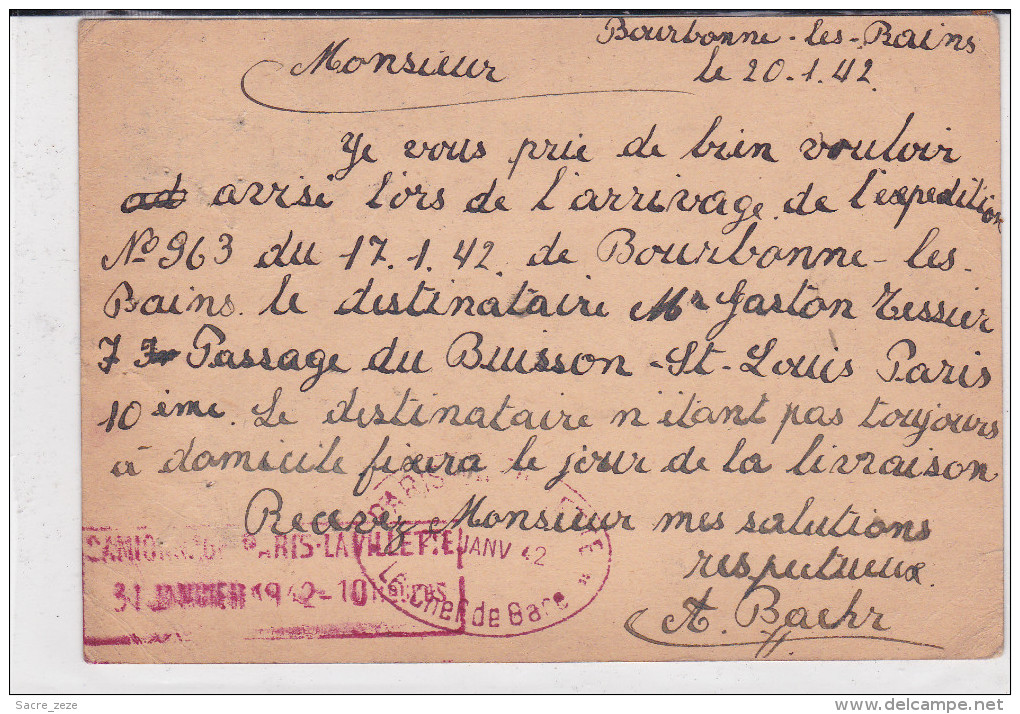 Bourbonne-les-Bains
le 20.1.42.
Monsieur
Je vous prie de bien vouloir
avisé lors de l'arrivage de l'expedition
No 963 du 17.1.42. de Bourbonne-les-
Bains. le destinataire Mr Gaston Tessier
7 Passage du Buisson-St-Louis Paris
10 ème. Le destinataire n'étant pas toujours
à domicile fixera le jour de la livraison
Recevez Monsieur mes salutions
respectueux.
A. Baehr
CAMIONNAGE PARIS-LAVILLETTE
31 JANVIER 1942-10 Heures
PARIS
JANV 42
Le Chef de Gare
Sacre_zeze
www.delcampe.net